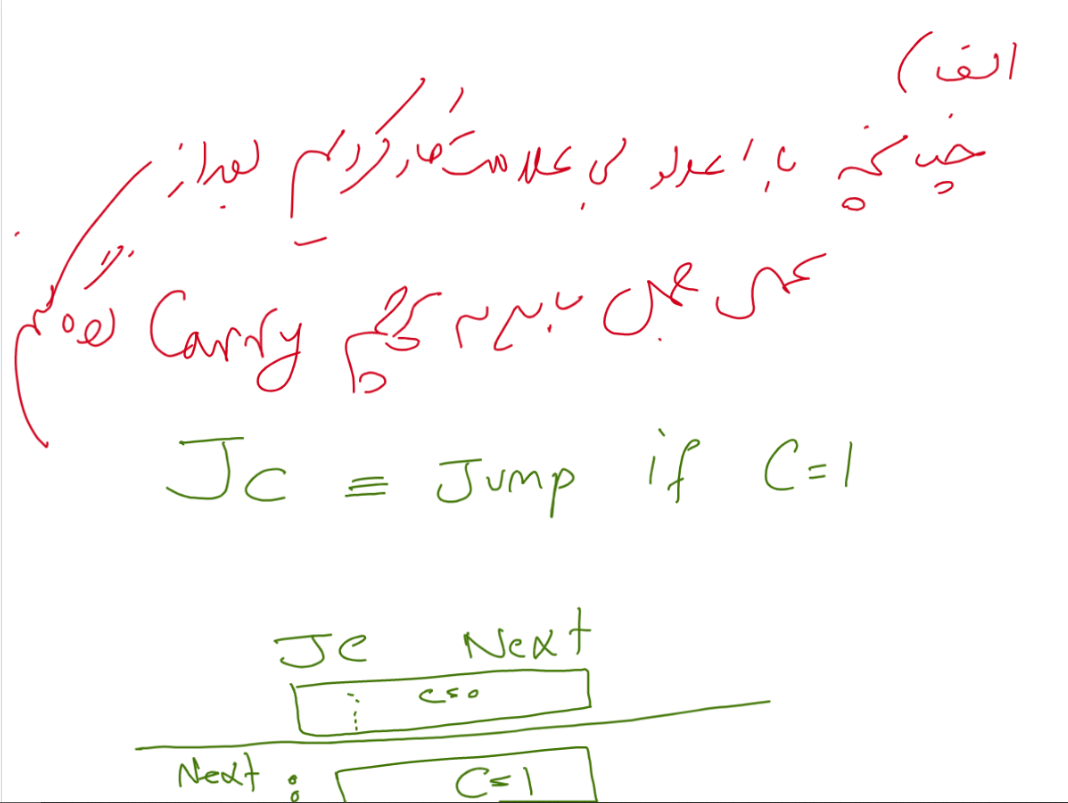 الف)
چنانچه با اعداد بی علامت کار کردیم بعد از
عمل جمع باید پرچم Carry
JC ≡ Jump if C=1
JC Next
C=0
Next : C=1